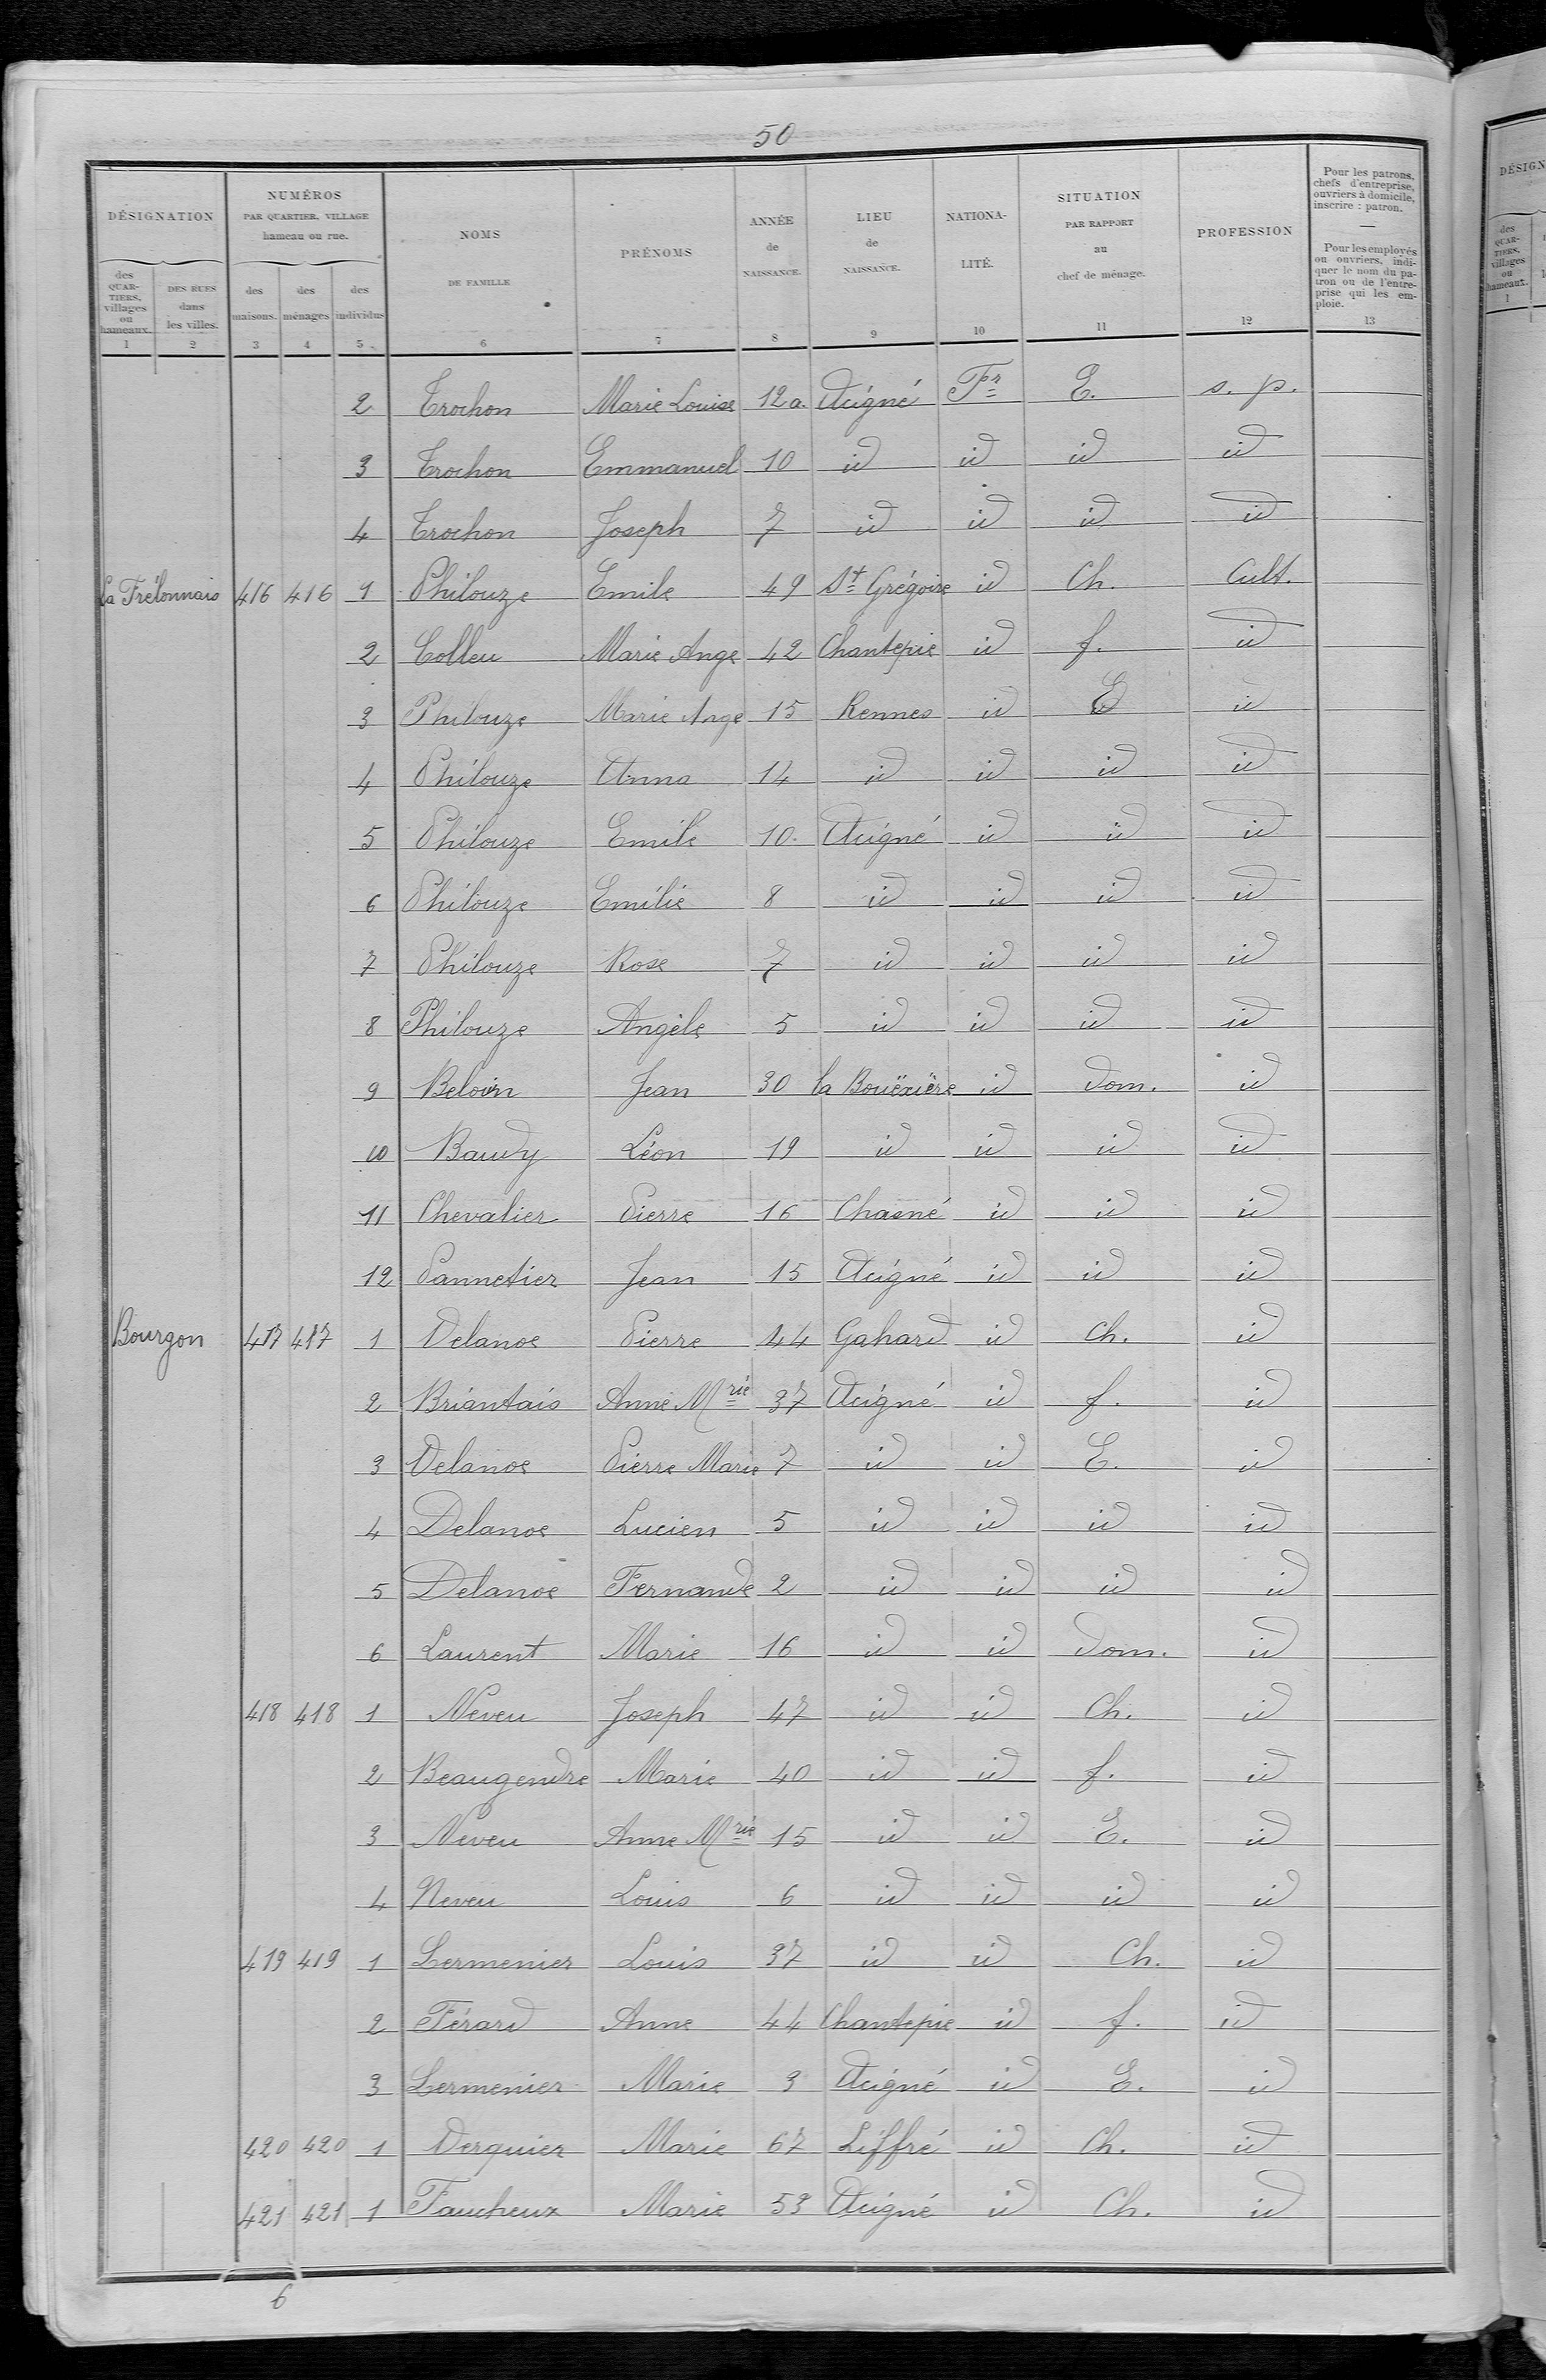 50
DÉSIGNATION
NUMÉROS
PAR QUARTIER, VILLAGE
hameau ou rue.
NOMS
DE FAMILLE
PRÉNOMS
ANNÉE
de
NAISSANCE.
LIEU
de
NAISSANCE.
NATIONA-
LITÉ.
SITUATION
PAR RAPPORT
au
chef de ménage.
PROFESSION
Pour les patrons,
chefs d'entreprise,
ouvriers à domicile,
inscrire : patron.
—
Pour les employés
ou ouvriers, indi-
quer le nom du pa-
tron ou de l'entre-
prise qui les em-
ploie.
des
QUAR-
TIERS,
villages
ou
hameaux.
DES RUES
dans
les villes.
des
maisons.
des
ménages
des
individus
1 2 3 4 5 6 7 8 9 10 11 12 13
2 Trochon Marie Louise 12 a. Acigné Fr E. s. p.
3 Trochon Emmanuel 10 id id id id
4 Trochon Joseph 7 id id id id
La Frélonnais 416 416 1 Philouze Emile 49 St Grégoire id Ch. Cult.
2 Colleu Marie Ange 42 Chantepie id f. id
3 Philouze Marie Ange 15 Rennes id E id
4 Philouze Anna 14 id id id id
5 Philouze Emile 10. Acigné id id id
6 Philouze Emilie 8 id id id id
7 Philouze Rose 7 id id id id
8 Philouze Angèle 5 id id id id
9 Beloin Jean 30 la Bouëxière id dom. id
10 Baudy Léon 19 id id id id
11 Chevalier Pierre 16 Chasné id id id
12 Pannetier Jean 15 Acigné id id id
Bourgon 417 417 1 Delanoe Pierre 44 Gahard id Ch. id
2 Briantais Anne Mrie 37 Acigné id f. id
3 Delanoe Pierre Marie 7 id id E. id
4 Delanoe Lucien 5 id id id id
5 Delanoe Fernande 2 id id id id
6 Laurent Marie 16 id id dom. id
418 418 1 Neveu Joseph 47 id id Ch. id
2 Beaugendre Marie 40 id id f. id
3 Neveu Anne Mrie 15 id id E. id
4 Neveu Louis 6 id id id id
419 419 1 Lermenier Louis 37 id id Ch. id
2 Férard Anne 44 Chantepie id f. id
3 Lermenier Marie 3 Acigné id E. id
420 420 1 Derquier Marie 67 Liffré id Ch. id
421 421 1 Faucheux Marie 53 Acigné id Ch. id
6
DÉSIGN
des
QUAR-
TIERS,
villages
ou
hameaux.
1